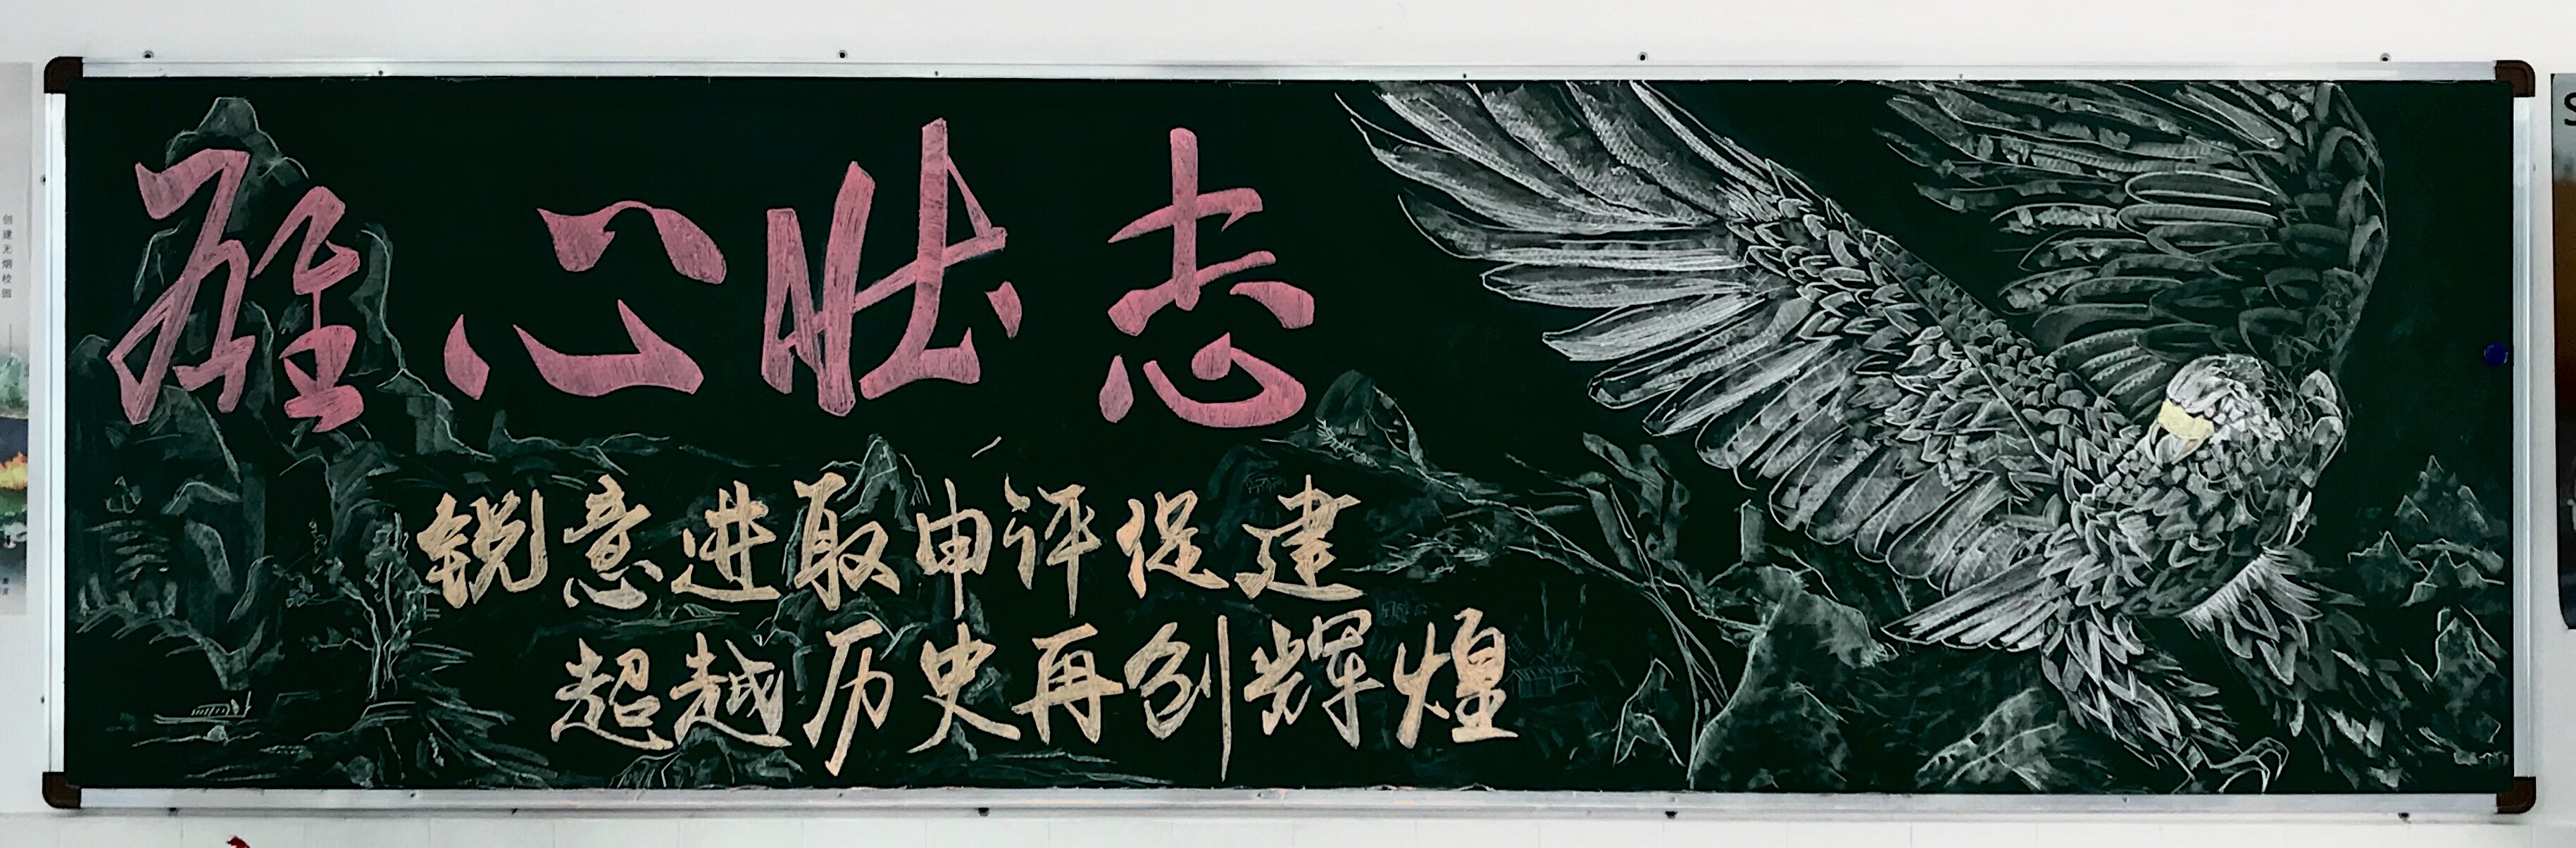 雄心壮志
锐意进取申评促建
超越历史再创辉煌
创建无烟校园
S